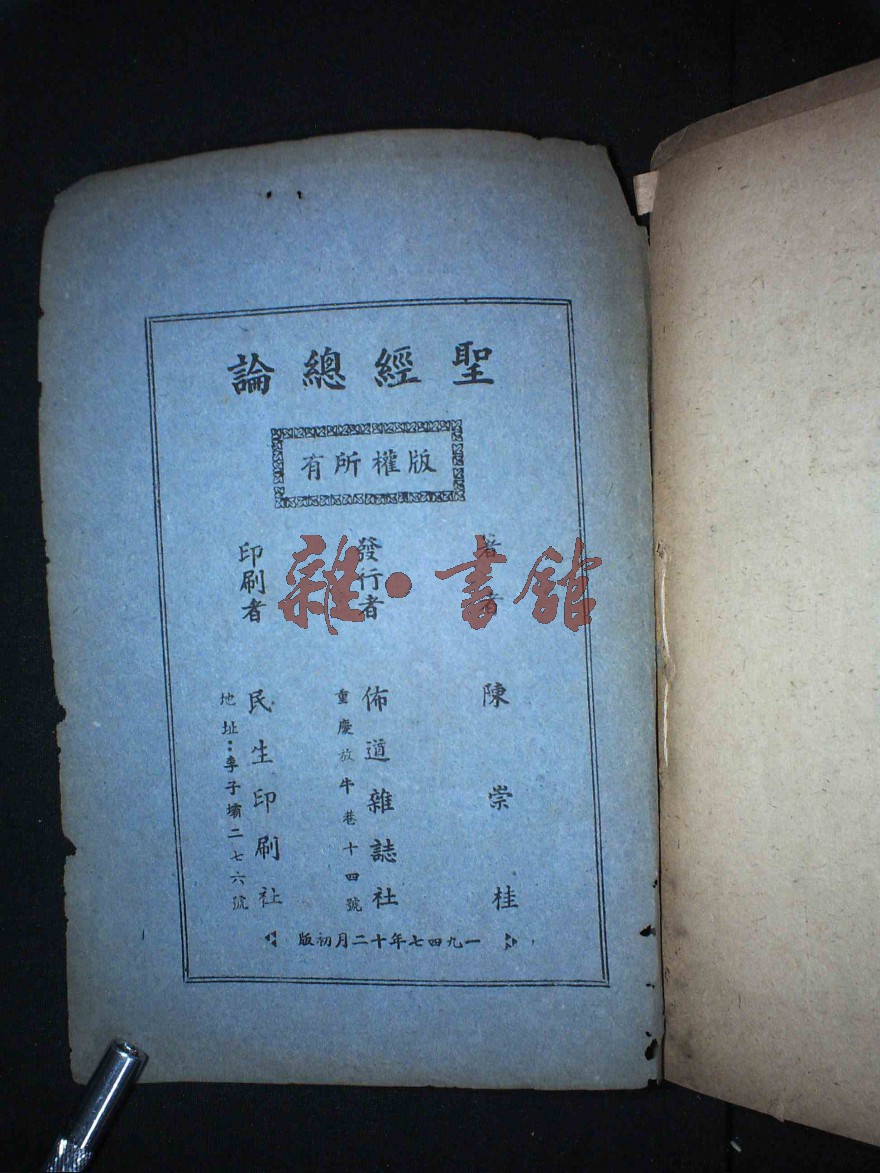 聖經總論
版權所有
著者
陳崇桂
發行者
佈道雜誌社
重慶放牛巷十四號
印刷者
民生印刷社
地址：李子壩二七六號
一九四七年十二月初版
雜·書館